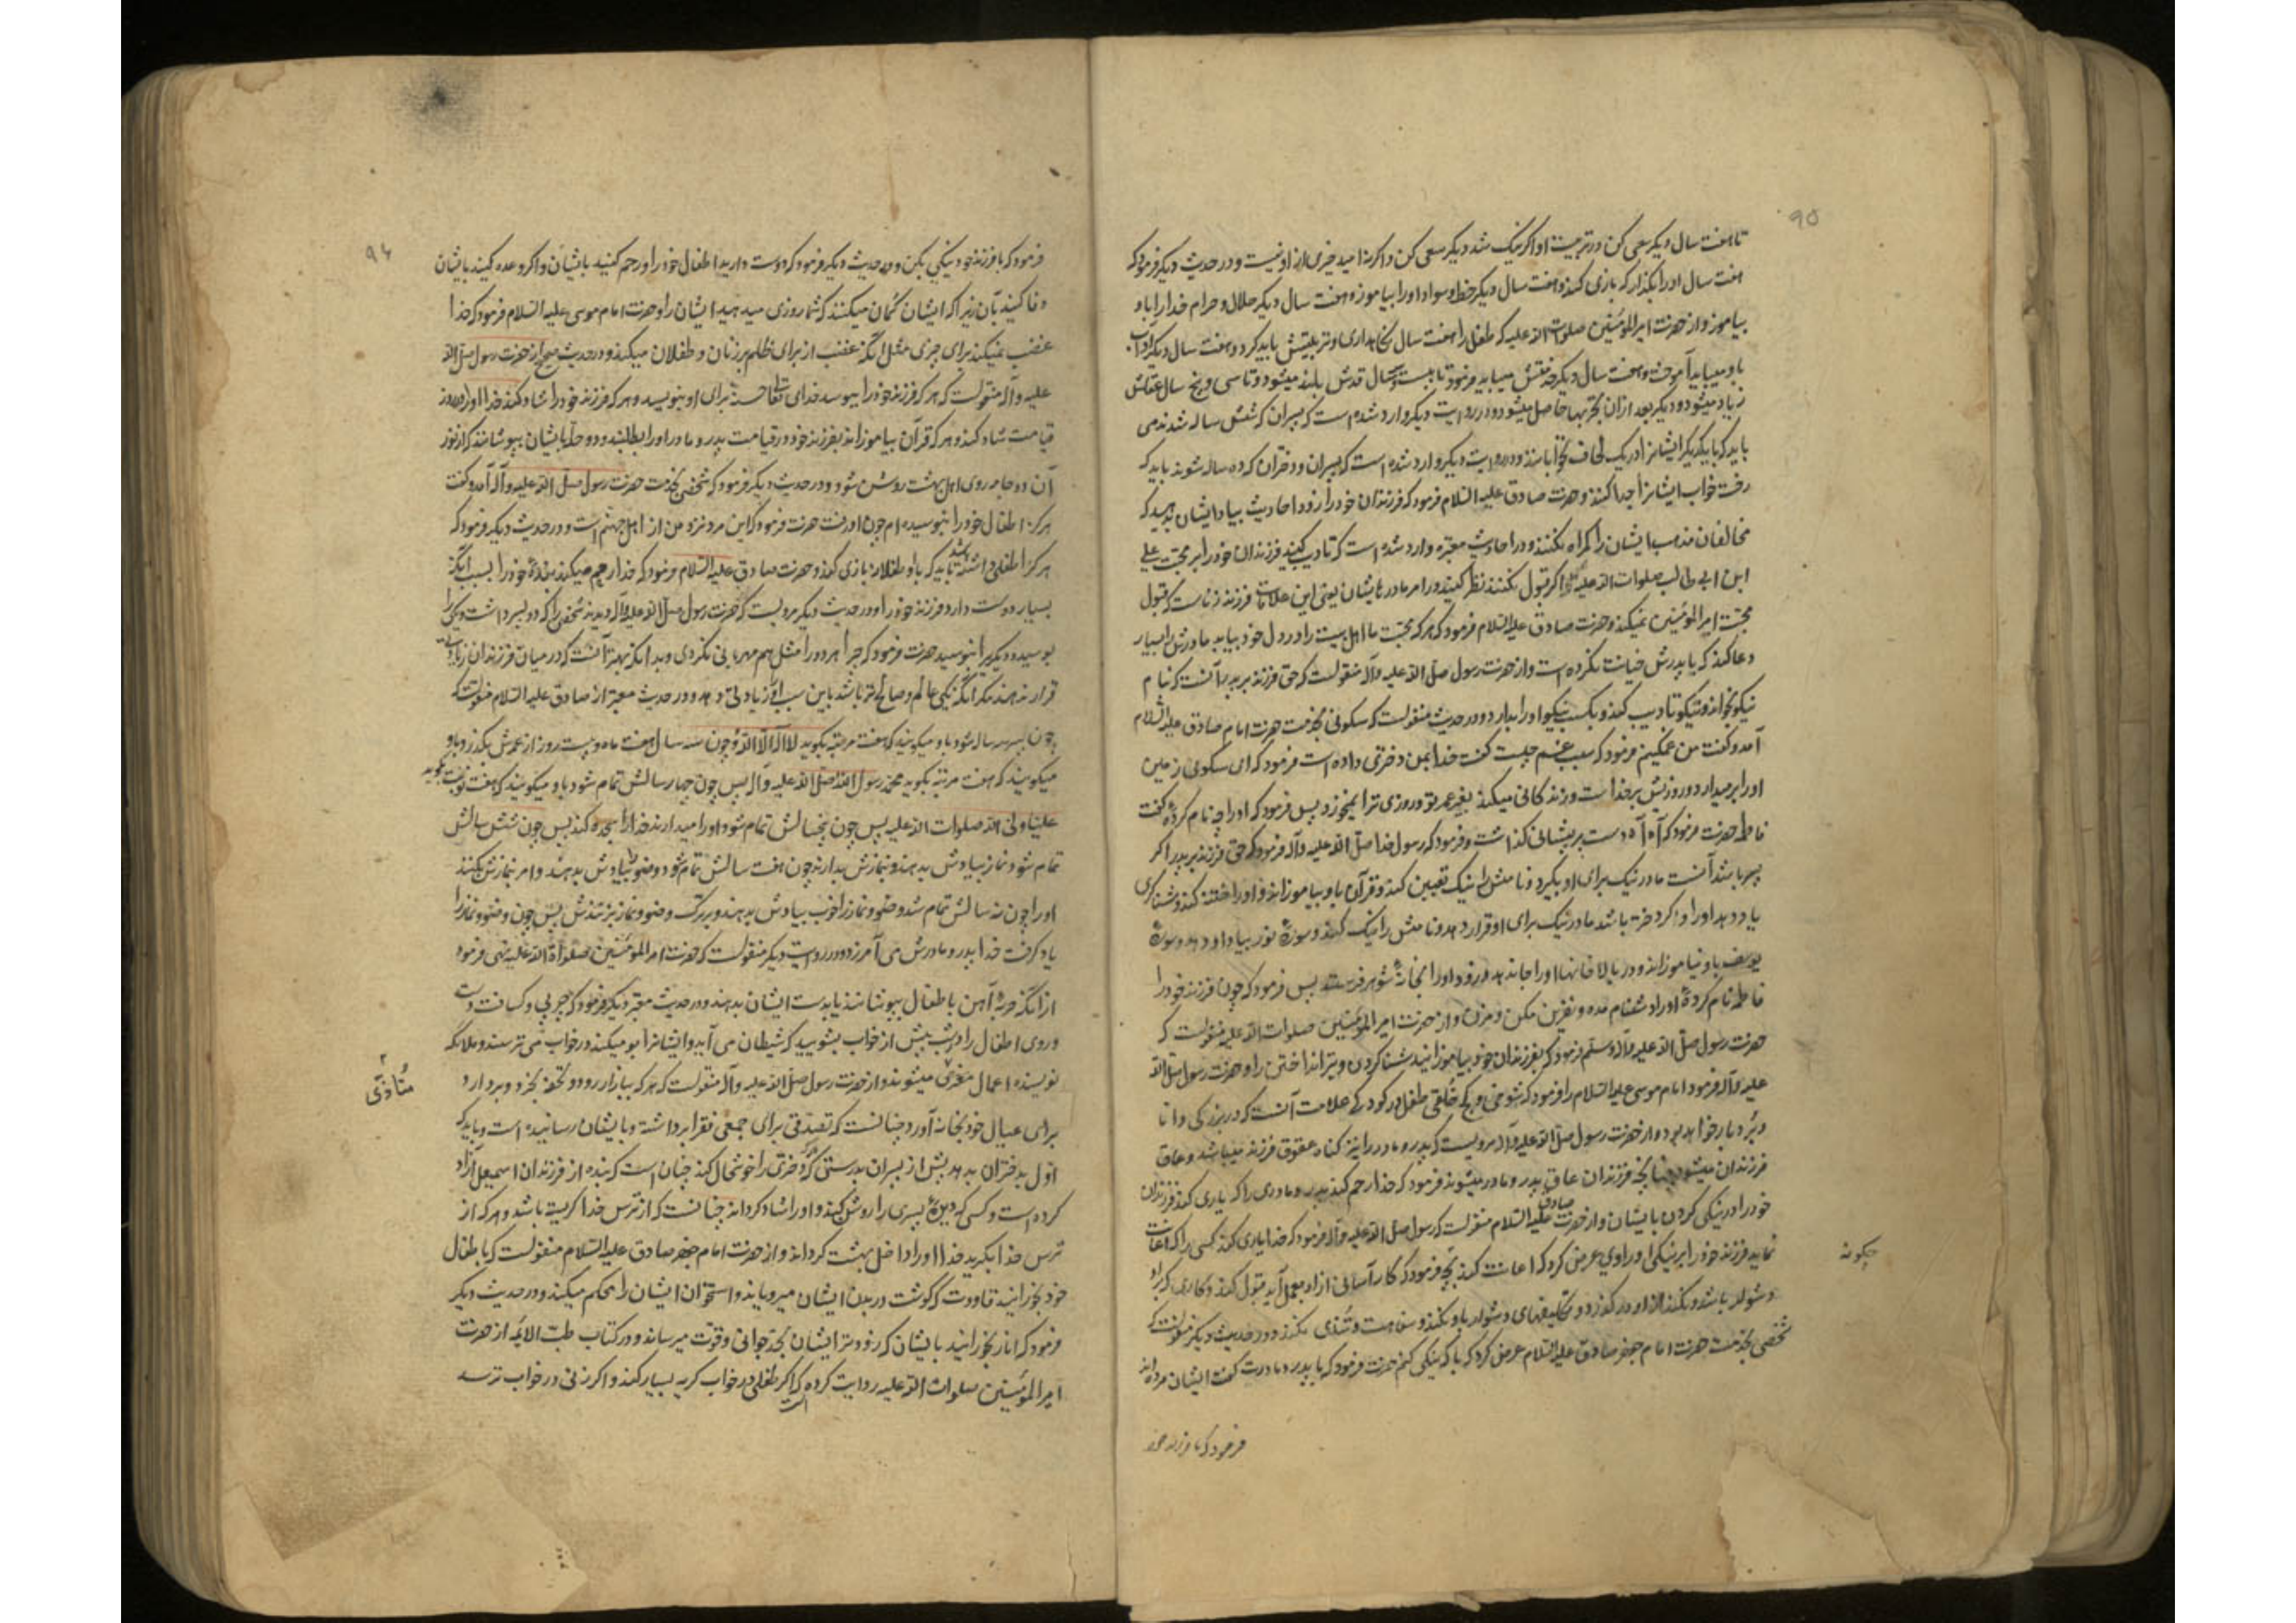 ۹۵
تا هفت سال دیگر سعی کن در تربیت او اگر نیک شد دیگر سعی کن و اگر نه امید خیری از او نیست و در حدیث دیگر فرمود که
هفت سال او را بگذار که بازی کند و هفت سال دیگر خط و سواد او را بیاموز و هفت سال دیگر حلال و حرام خدا را باو
بیاموز و از حضرت امیر المؤمنین صلوات الله علیه که طفل را هفت سال نگاهداری و تربیتش باید کرد و هفت سال دیگر آداب
باو میباید آموخت و هفت سال دیگر خدمتش میباید فرمود تا بیست و سال قدش بلند میشود و تا سی و پنج سال عقلش
زیاد میشود و دیگر بعد از آن تجربها حاصل میشود و در روایت دیگر وارد شده است که پسران که شش ساله شدند می
باید که با یکدیگر ایشانرا در یک لحاف نخوابانند و در روایت دیگر وارد شده است که پسران و دختران که ده ساله شوند باید که
رخت خواب ایشانرا جدا کنند و حضرت صادق علیه السلام فرمود که فرزندان خود را زود احادیث بیاد ایشان بدهید که
مخالفان مذهب ایشان را گمراه نکنند و در احادیث معتبره وارد شده است که تادیب کنید فرزندان خود را بر محبت علی
ابن ابی طالب صلوات الله علیه اگر قبول نکنند نظر کنید در امر مادرهایشان یعنی این علامات فرزند زناست که قبول
محبت امیر المؤمنین نمیکند و حضرت صادق علیه السلام فرمود که هر که محبت ما اهل بیت را در دل خود بیابد مادرش را بسیار
دعا کند که با پدرش خیانت نکرده است و از حضرت رسول صلی الله علیه و آله منقولست که حق فرزند بر پدر آنست که نام
نیکو بخواند و نیکو تادیب کند و بکسب نیکو او را بدارد و در حدیث منقولست که سکونی بخدمت حضرت امام صادق علیه السلام
آمد و گفت من غمگینم فرمود که سبب غم چیست گفت خدا بمن دختری داده است فرمود که ای سکونی زمین
او را بر میدارد و روزیش بر خداست و زندگانی میکند بغیر عمر تو و روزی ترا نمیخورد پس فرمود که او را چه نام کردهٔ گفت
فاطمه حضرت فرمود که آه آه دست بر پیشانی گذاشت و فرمود که رسول خدا صلی الله علیه و آله فرمود که حق فرزند بر پدر اگر
پسر باشد آنست مادر نیک برای او بگیرد و نامش را نیک تعیین کند و قرآن باو بیاموزاند و او را ختنه کند و شناگری
یاد دهد او را و اگر دختر باشد مادر نیک برای او قرار دهد و نامش را نیک کند و سورهٔ نور بیاد او دهد و سورهٔ
یوسف باو نیاموزاند و در بالاخانها او را جا ندهد و زود او را بخانهٔ شوهر فرستد پس فرمود که چون فرزند خود را
فاطمه نام کردهٔ او را دشنام مده و نفرین مکن و مزن و از حضرت امیر المؤمنین صلوات الله علیه منقولست که
حضرت رسول صلی الله علیه و آله وسلم فرمود که بفرزندان خود بیاموزانید شنا کردن و تیر انداختن را و حضرت رسول صلی الله
علیه و آله فرمود امام موسی علیه السلام را فرمود که شوخی و کج خلقی طفل در کودکی علامت آنست که در بزرگی دانا
و بردبار خواهد بود و از حضرت رسول صلی الله علیه و آله مرویست که پدر و مادر را نیز گناه عقوق فرزند میباشد و عاق
فرزندان میشوند چنانچه فرزندان عاق پدر و مادر میشوند فرمود که خدا رحم کند پدر و مادری را که یاری کند فرزندان
خود را در نیکی کردن با ایشان و از حضرت صادق علیه السلام منقولست که رسول صلی الله علیه و آله فرمود که خدا یاری کند کسی را که اعانت
نماید فرزند خود را بر نیکی او راوی عرض کرد که اعانت کند بچه فرمود که کار آسانی از او بعمل آید قبول کند و کاری که بر او
چگونه
دشوار باشد و نکند از او در گذرد و تکلیفهای دشوار باو نکند و سفاهت و تندی نکند و در حدیث دیگر منقولست که
شخصی بخدمت حضرت امام جعفر صادق علیه السلام عرض کرد که با که نیکی کنم حضرت فرمود که با پدر و مادرت گفت ایشان مرده اند
فرمود که با فرزند خود
۹۶
فرمود که با فرزند خود نیکی بکن و در حدیث دیگر فرمود که دوست دارید اطفال خود را و رحم کنید بایشان و اگر وعده کنید بایشان
وفا کنید بآن زیرا که ایشان گمان میکنند که شما روزی میدهید ایشان را و حضرت امام موسی علیه السلام فرمود که خدا
غضب نمیکند برای چیزی مثل آنکه غضب از برای ظلم بر زنان و طفلان میکند و در حدیث صحیح از حضرت رسول صلی الله
علیه و آله منقولست که هر که فرزند خود را ببوسد خدای تعالی حسنهٔ برای او بنویسد و هر که فرزند خود را شاد کند خدا او را در روز
قیامت شاد کند و هر که قرآن بیاموزاند بفرزند خود در قیامت پدر و مادر او را بطلبند و دو حله بایشان بپوشانند که از نور
آن دو جامه روی اهل بهشت روشن شود و در حدیث دیگر فرمود که شخصی بخدمت حضرت رسول صلی الله علیه و آله آمد و گفت
هرگز اطفال خود را نبوسیده ام چون او رفت حضرت فرمود که این مرد نزد من از اهل جهنم است و در حدیث دیگر فرمود که
هر که را طفلی داشته باشد باید که با او طفلانه بازی کند و حضرت صادق علیه السلام فرمود که خدا رحم میکند بندهٔ خود را بسبب آنکه
بسیار دوست دارد فرزند خود را و در حدیث دیگر مرویست که حضرت رسول صلی الله علیه و آله دیدند شخصی را که دو پسر داشت و یکی را
بوسید و دیگریرا نبوسید حضرت فرمود که چرا هر دو را مثل هم مهربانی نکردی و بدانکه بهتر آنست که در میان فرزندان زیادتی
قرار ندهند مگر آنکه یکی عالم و صالح تر باشد باین سبب او را زیادتی دهد و در حدیث معتبر از صادق علیه السلام منقولست که
چون پسر سه ساله شود باو میگویند که هفت مرتبه بگوید لا اله الا الله و چون سه سال و هفت ماه و بیست روز از عمرش بگذرد باو
میگویند که هفت مرتبه بگوید محمد رسول الله صلی الله علیه و آله پس چون چهار سالش تمام شود باو میگویند که هفت نوبت بگوید
علیا ولی الله صلوات الله علیه پس چون پنج سالش تمام شود او را میدارند خدا را سجده کند پس چون شش سالش
تمام شود نماز بیادش بدهند و بنمازش بدارند چون هفت سالش تمام شود وضو بیادش بدهند و امر بنمازش بکنند
او را چون نه سالش تمام شد وضو و نماز را خوب بیادش بدهند و بر ترک وضو و نماز بزنندش پس چون وضو و نماز را
یاد گرفت خدا پدر و مادرش می آمرزد و در روایت دیگر منقولست که حضرت امیر المؤمنین صلواة الله علیه نهی فرمود
از آنکه حربهٔ آهن باطفال بپوشانند یا بدست ایشان بدهند و در حدیث معتبر دیگر فرمود که چربی و کسافت دست
و روی اطفال را در شب پیش از خواب بشویید که شیطان می آید و ایشانرا بو میکند در خواب می ترسند و ملائکه
نویسنده اعمال متأذی میشوند و از حضرت رسول صلی الله علیه و آله منقولست که هر که ببازار رود و تحفهٔ بخرد و بردارد
متأذی
برای عیال خود بخانه آورد چنانست که تصدقی برای جمعی فقرا برداشته و بایشان رسانیده است و باید که
اول بدختران بدهد پیش از پسران بدرستی که هر که دختری را خوشحال کند چنان است که بنده از فرزندان اسمعیل آزاد
کرده است و کسی که دیدهٔ پسری را روشن کند و او را شاد گرداند چنانست که از ترس خدا گریسته باشد و هر که از
ترس خدا بگرید خدا او را داخل بهشت گرداند و از حضرت امام جعفر صادق علیه السلام منقولست که باطفال
خود بخورانید قاووت که گوشت در بدن ایشان میرویاند و استخوان ایشان را محکم میکند و در حدیث دیگر
فرمود که انار بخورانید بایشان که زودتر ایشان بحد جوانی و قوت میرساند و در کتاب طب الائمه از حضرت
امیر المؤمنین صلوات الله علیه روایت کرده که اگر طفلی در خواب گریه بسیار کند و اگر زنی در خواب ترسد